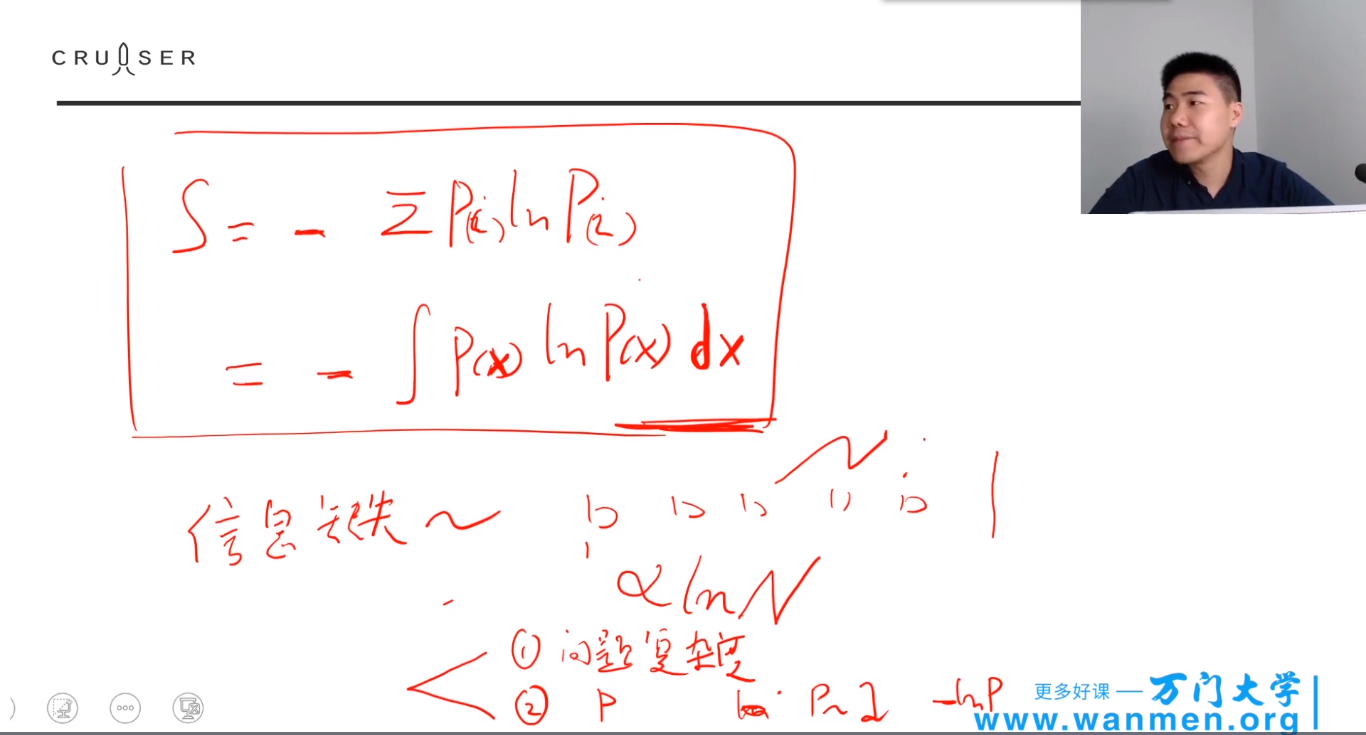 CRUISER
S = - Σ P(i) ln P(i)
= - ∫ P(x) ln P(x) dx
N
信息缺失 ~
∝ ln N
① 问题复杂度
② P P~1 -lnP
更多好课 — 万门大学
www.wanmen.org